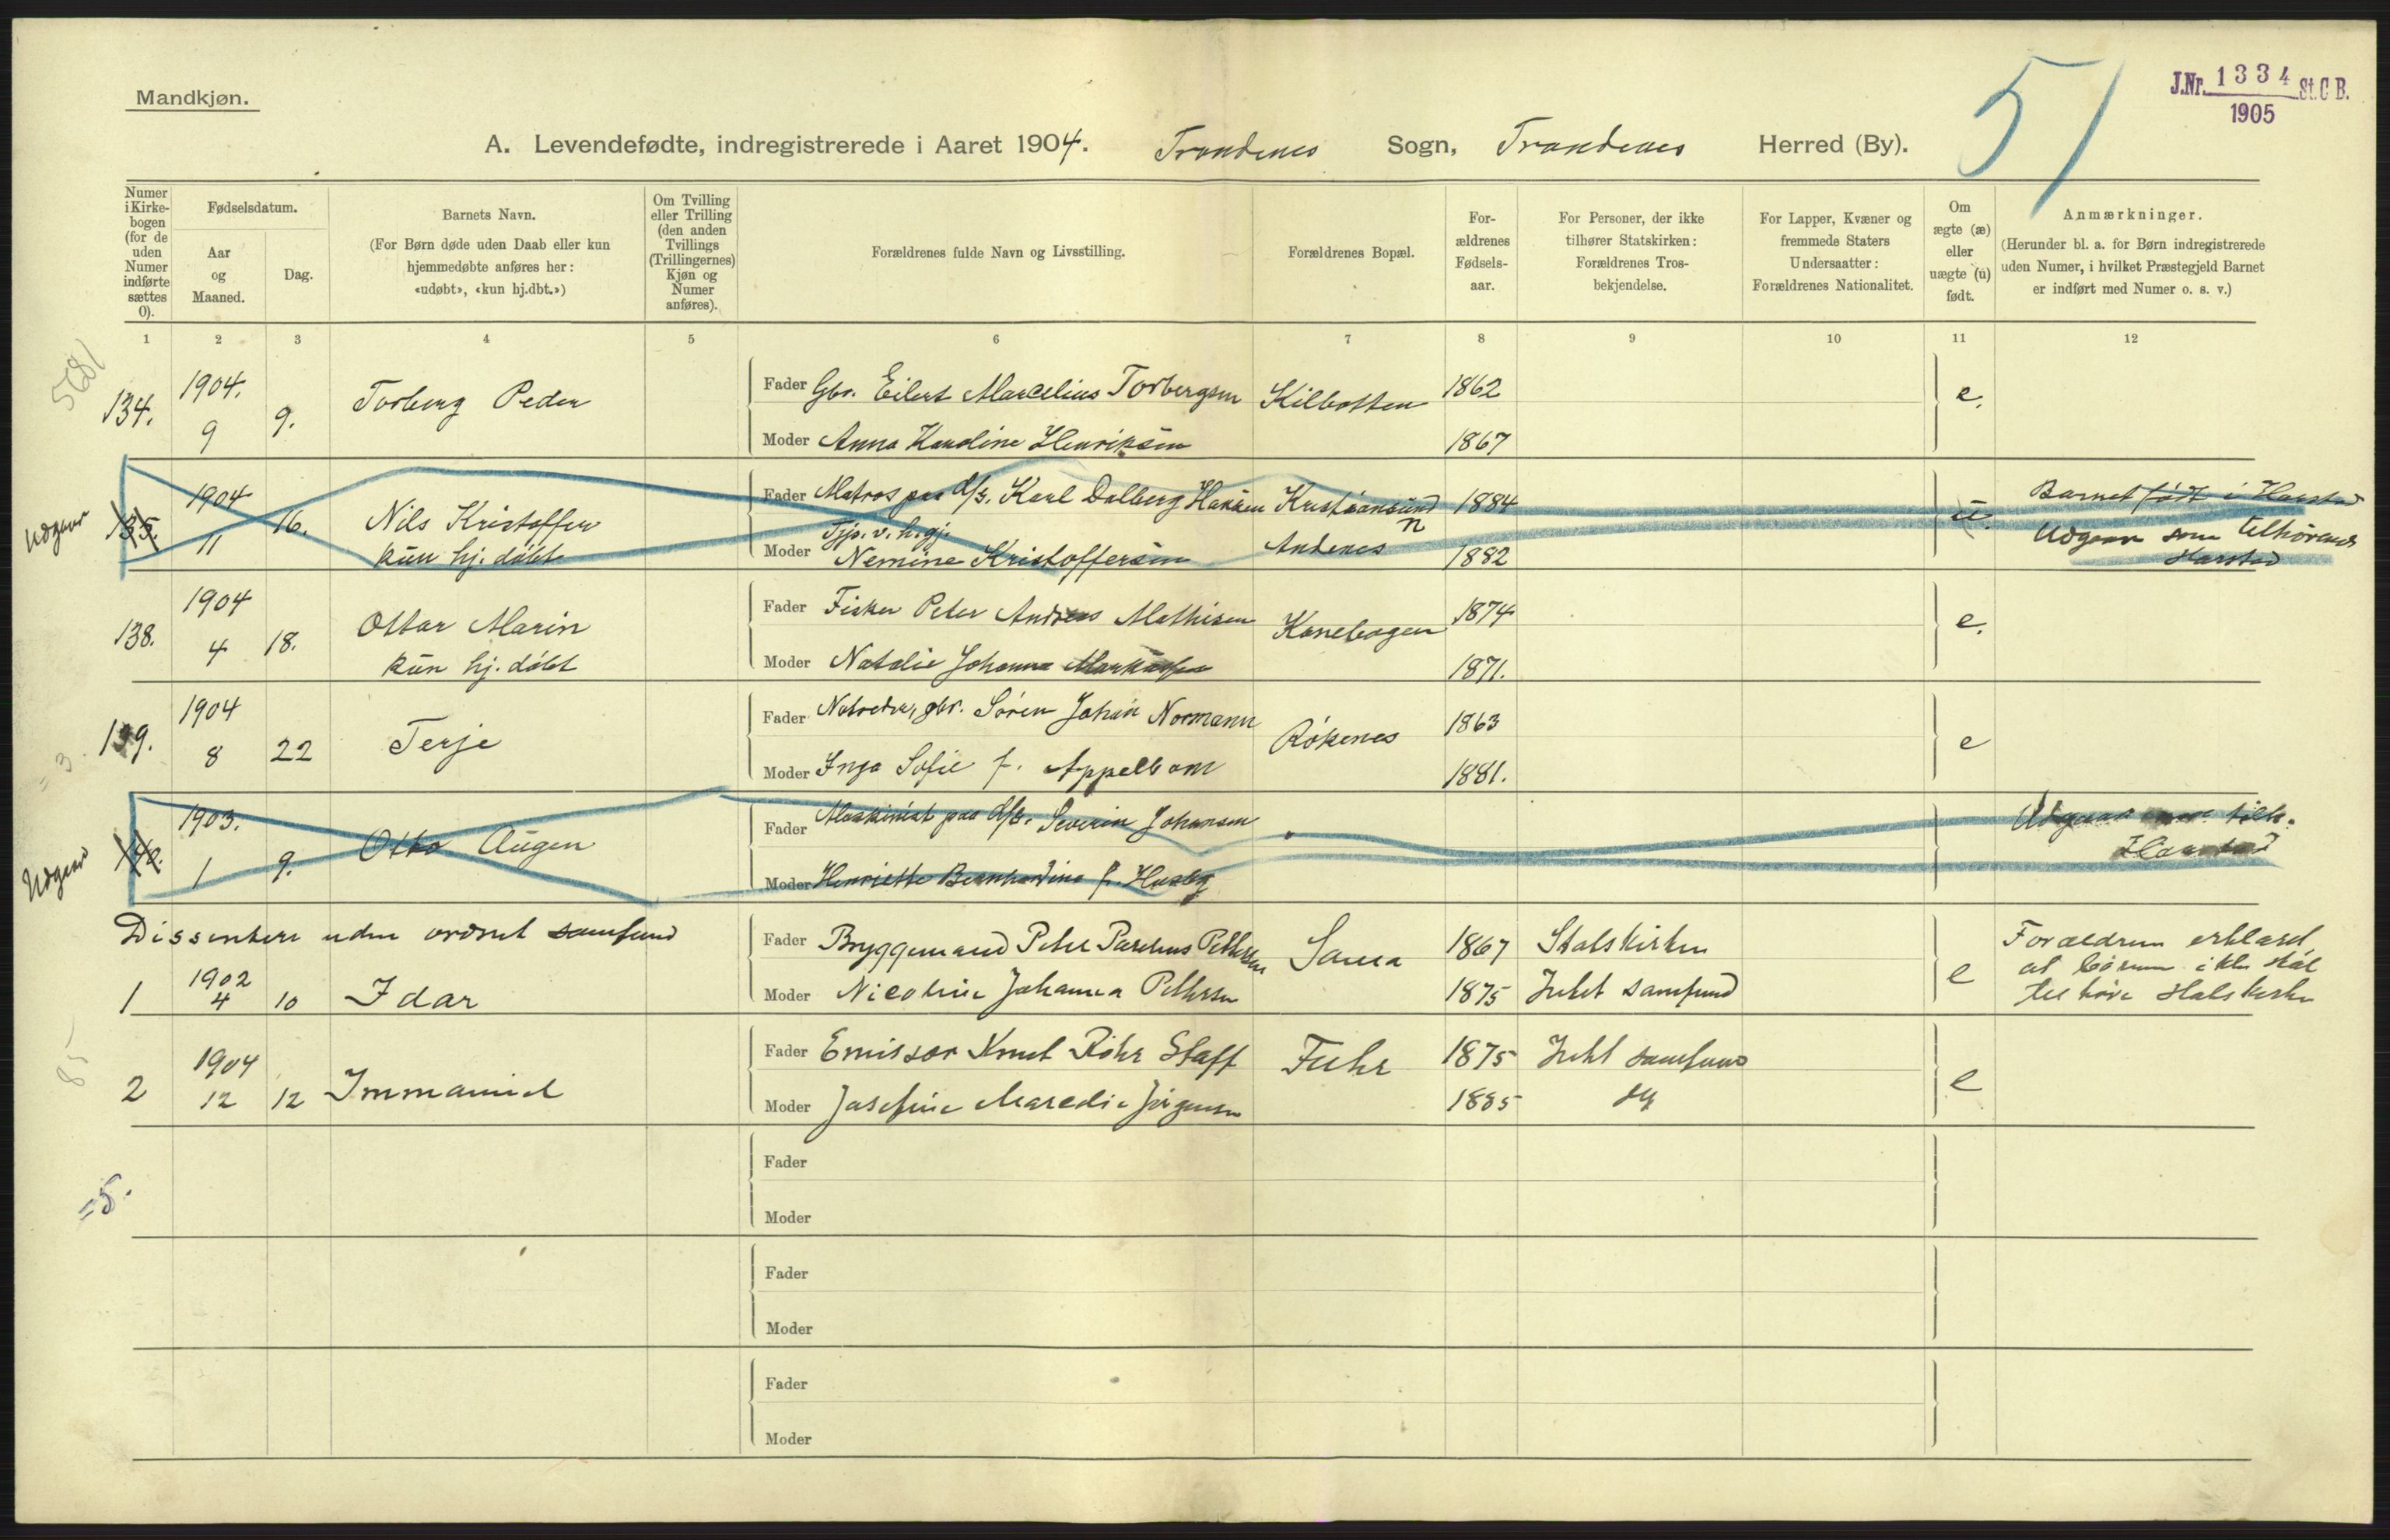 Mandkjøn.
J.Nr. 1334 St. C B.
1905
51
A. Levendefødte, indregistrerede i Aaret 1904. Trondenes Sogn, Trondenes Herred (By).
Numer i Kirkebogen (for de uden Numer indførte sættes 0).
Fødselsdatum.
Aar og Maaned.
Dag.
Barnets Navn.
(For Børn døde uden Daab eller kun hjemmedøbte anføres her: «udøbt», «kun hj.dbt.»)
Om Tvilling eller Trilling (den anden Tvillings (Trillingernes) Kjøn og Numer anføres).
Forældrenes fulde Navn og Livsstilling.
Forældrenes Bopæl.
For-ældrenes Fødsels-aar.
For Personer, der ikke tilhører Statskirken: Forældrenes Tros-bekjendelse.
For Lapper, Kvæner og fremmede Staters Undersaatter: Forældrenes Nationalitet.
Om ægte (æ) eller uægte (u) født.
Anmærkninger.
(Herunder bl. a. for Børn indregistrerede uden Numer, i hvilket Præstegjeld Barnet er indført med Numer o. s. v.)
1 2 3 4 5 6 7 8 9 10 11 12
5681
134. 1904. 9 9. Torberg Peder
Fader Gbr. Eilert Marcelius Torbergsen Kilbotten 1862 e.
Moder Anna Karoline Henriksen 1867
Udgaar
135. 1904 11 16. Nils Kristoffer
kun hj. døbt
Fader Matros paa d/s. Karl Dalberg Hansen Kristiansund N 1884 u.
Tjp. v. h.gj.
Moder Nemine Kristoffersen Andenes 1882
Barnet født i Harstad
Udgaar som tilhørende
Harstad
138. 1904 4 18. Ottar Marin
kun hj. døbt
Fader Fisker Peter Andreas Mathisen Kanebogen 1874 e.
Moder Natalie Johanna 1871.
= 3.
139. 1904 8 22 Terje
Fader Notreder, gbr. Søren Johan Normann Røkenes 1863 e
Moder Inga Sofie f. Appelbom 1881.
Udgaar
140. 1903. 1 9. Otto Augen
Fader Maskinist paa d/s. Severin Johansen
Moder Henriette Bernhardine f. Husby
Udgaar tilh.
Harstad
Dissentere uden ordnet samfund
1 1902 4 10 Idar
Fader Bryggemand Peter Parelius Pettersen Sama 1867 Statskirken e
Moder Nicoline Johanna Pettersen 1875 Intet samfund
Forældrene erklæret
at børnene ikke skal
tilhøre Statskirken
85
2 1904 12 12 Immanuel
Fader Emissær Knut Røhr Staff Fuhr 1875 Intet samfund e
Moder Josefine Maredie Jørgensen 1885 do
=5.
Fader
Moder
Fader
Moder
Fader
Moder